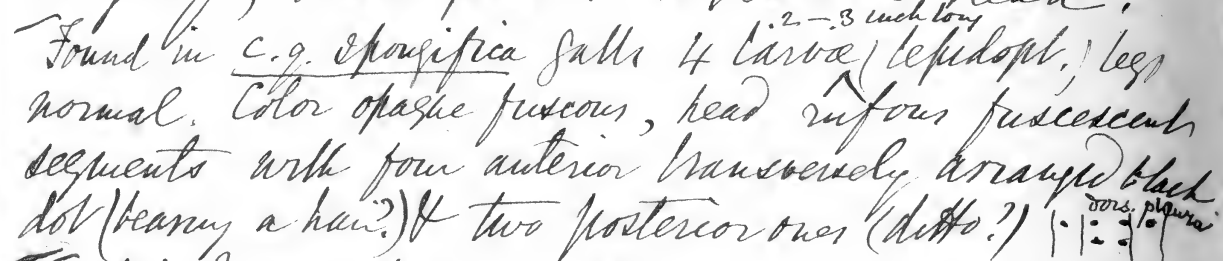 .2 – .3 inch long
Found in c.q. spongifica galls 4 larvæ (lepidopt.) legs
normal. Color opaque fuscous, head rufous fuscescent
segments with four anterior transversely arranged black
dot (bearing a hair?) & two posterior ones (ditto?)
dors. pleura